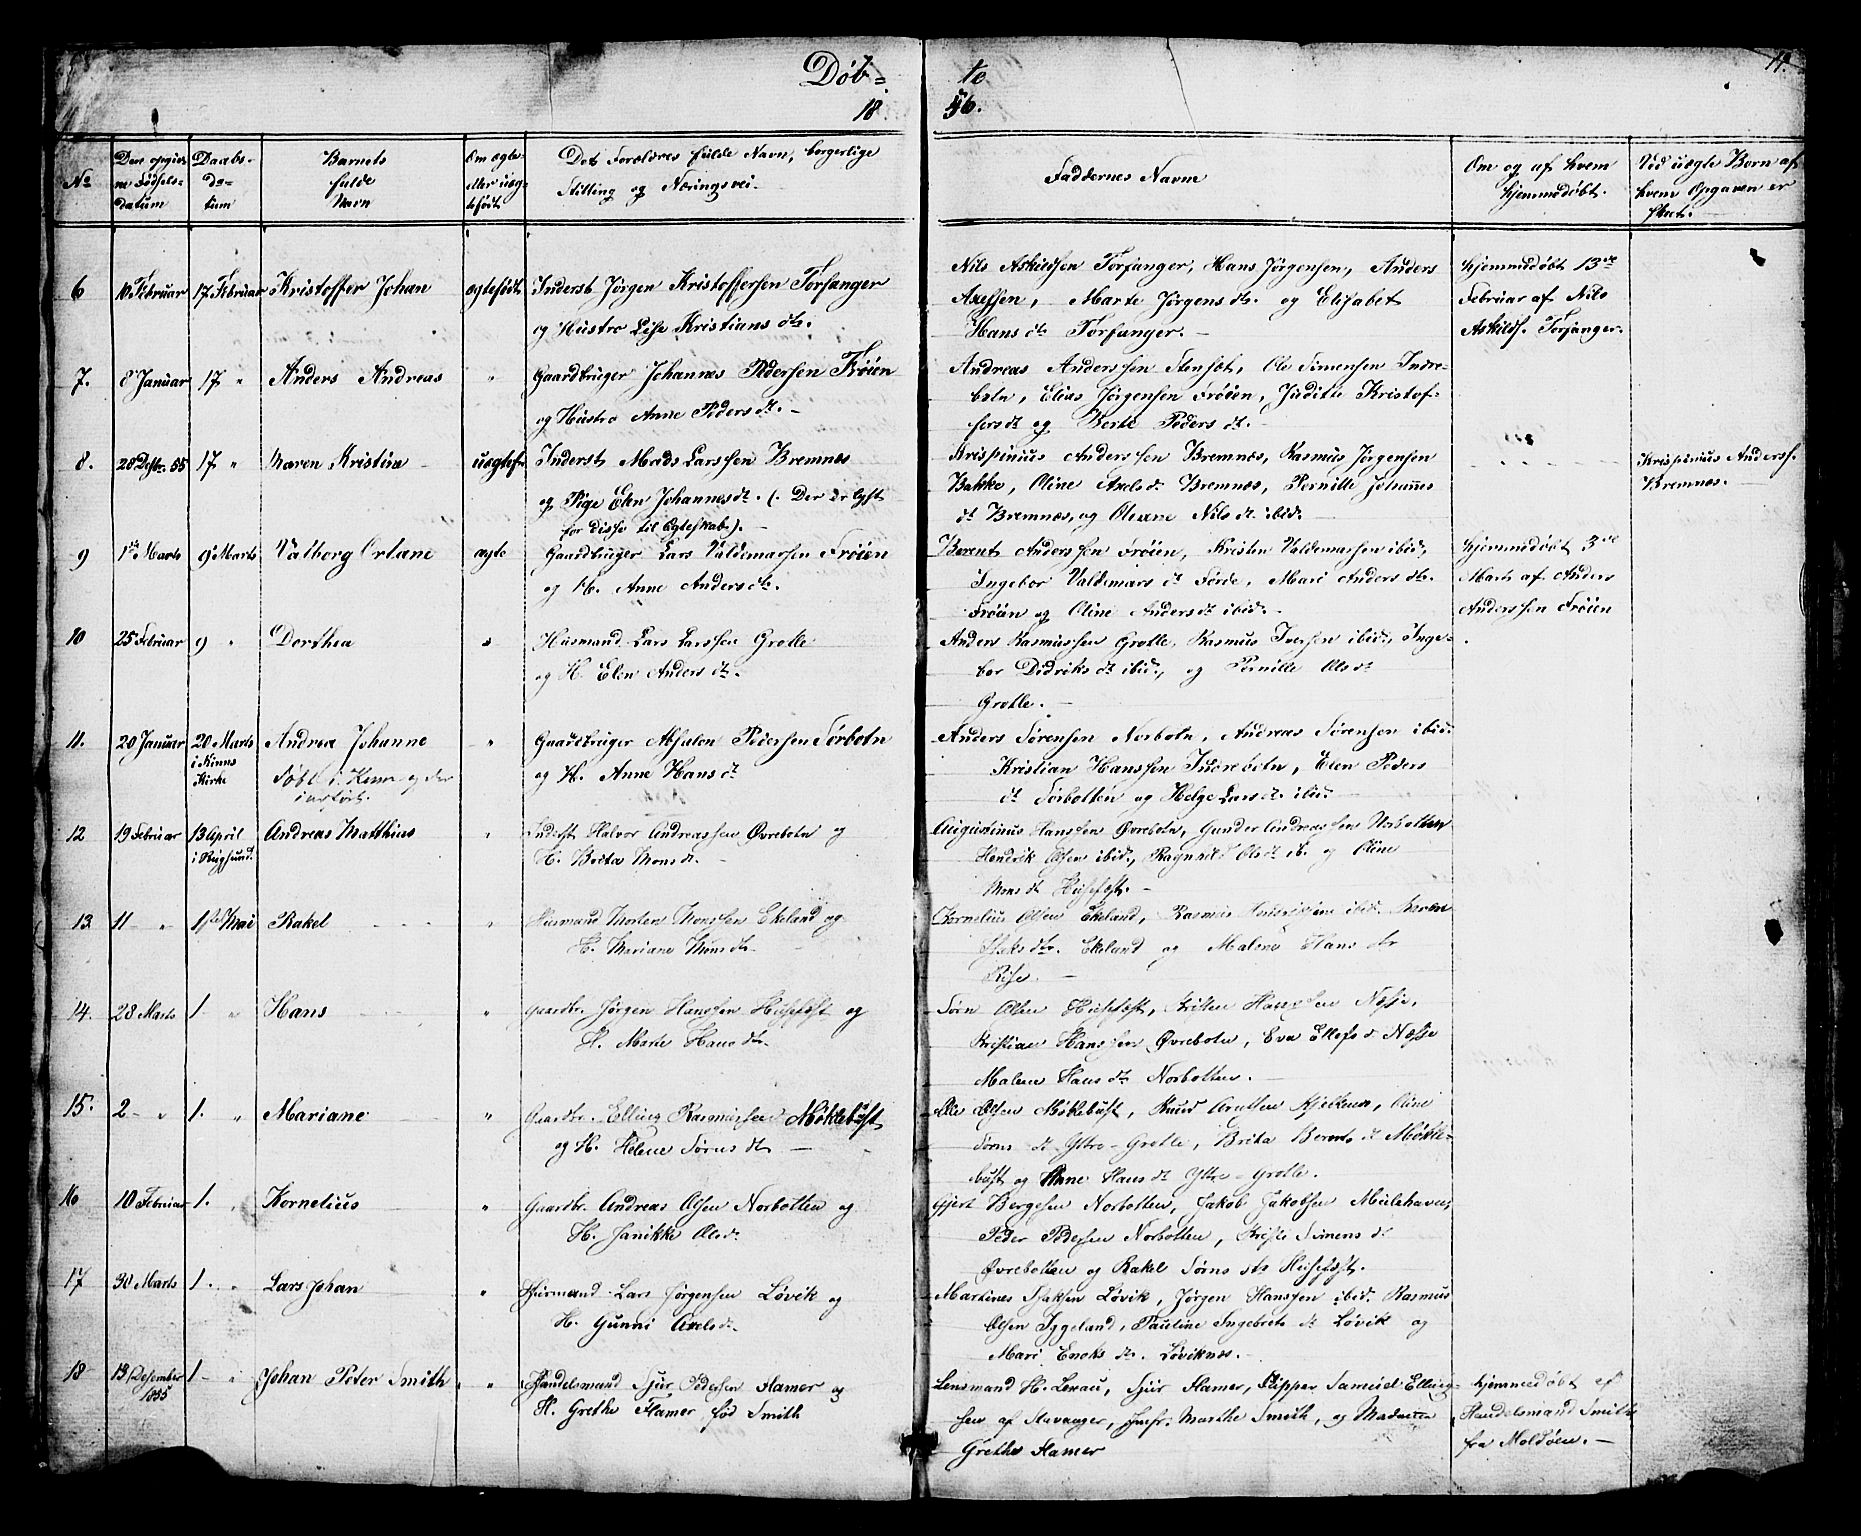 Døb=
te
14.
18
56.
No
Den opgiv=
ne Fødsels=
datum
Daabs=
da=
tum
Barnets
fulde
Navn
Om ægte=
eller uæg=
tefødt
Det Forældres fulde Navn, borgerlige
Stilling og Næringsvei.
Faddernes Navne
Om og af hvem
hjemmedøbt.
Ved uægte Børn af
hvem Opgaven er
skeet.
6 10 Februar 17 Februar Kristoffer Johan ægtefødt Inderst Jørgen Kristoffersen Torfanger
og Hustro Lise Kristians dtr.
Nils Askildsen Torfanger, Hans Jørgensen, Anders
Axelsen, Marte Jørgens dtr. og Elisabet
Hans dtr Torfanger.
Hjemmedøbt 13de
Februar af Nils
Askilds. Torfanger.
7. 8 Januar 17 " Anders Andreas " Gaardbruger Johannes Pedersen Frøien
og Hustro Anne Peders dt.
Andreas Anderssen Stensæt, Ole Simensen Indre=
botn, Elias Jørgensen Frøien, Juditte Kristof=
fersdt og Berte Peders dt.
8. 28 Desbr. 55 17 " Maren Kristina uægtef. Inderst Mads Larssen Bremnes
og Pige Elen Johannesdt. (Der er lyst
for disse til Ægteskab).
Krispinius Anderssen Bremnes, Rasmus Jørgensen
Bakke, Oline Axelsd. Bremnes, Pernille Johannes
dt Bremnes, og Oleane Nils dt. ibid.
Krispinius Anderss.
Bremnes.
9 1ste Marts 9 Marts Valborg Orlane ægte Gaardbruger Lars Valdemarsen Frøien
og H. Anne Anders dtr.
Berent Anderssen Frøien, Kristen Valdemarsen ibid,
Ingebor Valdemars dt Førde, Mari Anders dtr.
Frøien og Oline Anders dt ibid.
Hjemmedøbt 3de
Marts af Anders
Anderssen Frøien
10 25 Februar 9 " Dorthea " Husmand Lars Larssen Grotle
og H. Elen Anders dt.
Anders Rasmussen Grotle, Rasmus Iversen ibid., Inge=
bor Didriks dt ibid., og Pernille Ols dt
Grotle.
11. 20 Januar 20 Marts Andrea Johanne " Gaardbruger Absalon Pedersen Sørbotn
i Kinns
Kirke
Født i Kinn og der
indført.
og H. Anne Hans dt
Anders Sørensen Norbotn, Andreas Sørensen ibid.
Kristian Hanssen Indrebotn, Elen Peders
dt Sørbotten og Helge Lars dt. ibid.
12 19 Februar 13 April Andreas Matthius " Inderst Halvor Andreassen Øvrebotn og
i Rugsund.
H. Brita Mons dt.
Augustinus Hanssen Øvrebotn, Gunder Andreassen Norbotten
Hendrik Olsen ibid., Ragnild Ols dt ib. og Oline
Mons dt Husefæst.
13. 11 " 1ste Mai Rakel " Husmand Morten Monssen Ekeland og
H. Mariane Mons dtr.
Kornelius Olsen Ekeland, Rasmus ibid.
Isaks dtr. Ekeland og Malene Hans dtr
Rise.
14. 28 Marts 1. " Hans " Gaardbr. Jørgen Hanssen Husefæst og
H. Marte Hans dtr.
Sørn Olsen Husefæst, Kristen Hanssen Næsse,
Kristian Hanssen Øvrebotn, Eva Ellefs d. Næsse
Malene Hans dtr Norbotten.
15. 2 " 1. " Mariane " Gaardbr. Elling Rasmussen Møklebust
og H. Helene Sørns dt
Ole Olsen Møklebust, Knud Knutsen Hjelkenes, Oline
Sørns dt Ytre-Grotle, Brita Bernts dt Møkle=
bust og Hane Hans dt Ytre-Grotle.
16 10 Februar 1. " Kornelius " Gaardbr. Andreas Olsen Norbotten og
H. Janikke Olsdt.
Gjert Børgesen Norbotten, Jakob Jakobsen Mulehavn,
Peder Pedersen Norbotten, Kristi Simens dt
Øvrebotten og Rakel Sørns dtr Husefæst.
17 30 Marts 1. " Lars Johan " Husmand Lars Jørgensen Løvik og
H. Gunni Axelsdt.
Martines Isaksen Løvik, Jørgen Hanssen ibid. Rasmus
Olsen Iggeland, Pauline Ingebrets dt Løvik og
Mari Enoks dtr. Løviknæs.
18 13 Desember 1 " Johan Peter Smith " Handelsmand Sjur Pedersen Hamer og
1855
H. Grethe Hamer fød Smith
Lensmand H. Lexau, Sjur Hamer, Skipper Samuel Elling=
sen af Stavanger, Jmfr. Marthe Smith, og Madame
Grethe Hamer
Hjemmedøbt af
Handelsmand Smith
fra Moldøen.